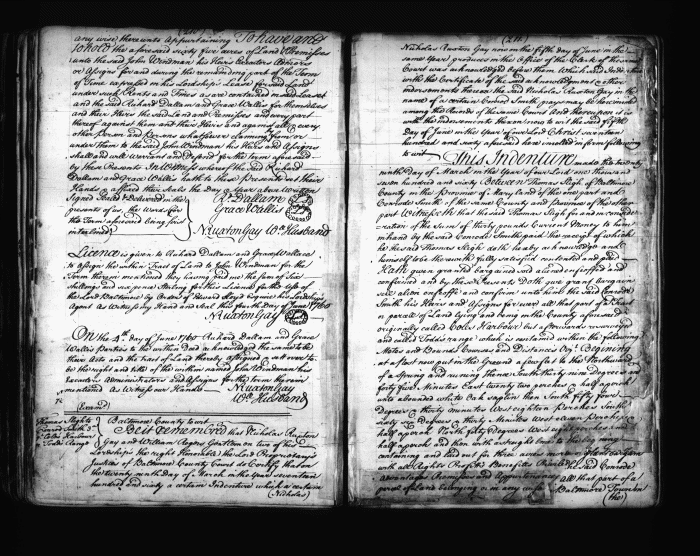 (210)
any wise thereunto appurtaining To have and
to hold the aforesaid sixty five acres of Land & Premisses
unto the said John Windman his Heirs Executors Admors
or Assigns for and during the remainding part of the Term
of Time expressed in his Lordships Lease for said Land
under such Rents and Times as are contained in said Lease
and the said Richard Dallam and Grace Wallis for themselves
and their Heirs the said Land and Premises and every part
thereof against them and their Heirs and against all & every
other Person and Persons whatsoever claiming from or
under them to the said John Windman his Heirs and Assigns
shall and will warrant and Defend for the term aforesaid
by these Presents In Witness whereof the said Richard
Dallam and Grace Wallis hath to these Presents set their
Hands & affixed their Seals the Day & Year above Written
Signed Seal'd & Delivered in the
presence of us
the Term aforesaid being first
interlined
Rd. Dallam
Grace Wallis
N Ruxton Gay Wm Husband
Licence is given to Richard Dallam and Grace Wallis
to Assign the within Tract of Land to John Windman for the
Term therein mentioned they having paid me the sum of six
Shillings and six pence Sterling for this Licence for the Use of
the Lord Baltimore by Order of Edward Lloyd Esquire his Lordships
Agent As Witness my Hand and Seal this fourth day of June 1760
N Ruxton Gay
On the 4th day of June 1760 Richard Dallam and Grace
Wallis Parties to the within Deed acknowledged the same to be
their Act and the tract of Land thereby assigned & set over to
be the right and title of the within named John Windman his
Executors Administrators and Assigns for the Term therein
mentioned as witness our Hands
N Ruxton Gay
Wm Husband
(Examd)
Thomas Sligh
Conrod Smith
Coles Harbour
Todds Range
Baltimore County to wit
Be it remembered that Nicholas Ruxton
Gay and William Rogers Gentlemen two of the
Lordships the right Honourable the Lord Proprietarys
Justices of Baltimore County Court to Certify that on
the twenty ninth day of March in the Year seventeen
hundred and sixty a certain Indenture which a certain
(Nicholas)
(211)
Nicholas Ruxton Gay now on the fifth day of June in the
same Year produces in the Office of the Clerk of the same
Court was acknowledged before them Which said Indenture
with the Certificate of the said acknowledgment & other
indorsements thereon the said Nicholas Ruxton Gay in the
name of a certain Conrod Smith prays may be inrolled
among the Records of the same Court And thereupon it is
with the indorsements thereon to wit on the said fifth
day of June in the Year of our Lord Christ seventeen
hundred and sixty aforesaid here inrolled in form following
to wit
This Indenture made this twenty
ninth Day of March in the Year of our Lord one thousand
seven hundred and sixty Between Thomas Sligh of Baltimore
County in the Province of Maryland of the one part and
Conrode Smith of the same County and Province of the other
part Witnesseth that the said Thomas Sligh for and in conside-
ration of the Sum of thirty pounds Current Money to him
in hand by the said Conrode Smith paid the receipt of which
he the said Thomas Sligh doth hereby acknowledge and
himself to be therewith fully satisfied contented and paid
Hath given granted bargained sold aliened enfeoffed and
confirmed and by these Presents Doth give grant bargain
sell alien enfeoffe and confirm unto him the said Conrode
Smith his Heirs and Assigns for ever all that part of a Tract
or parcell of Land lying and being in the County aforesaid
originally called Coles Harbour but afterwards resurveyed
and called Todds range which is contained within the following
Metes and Bounds Courses and Distances Viz. Beginning
at a Post now put in the Ground a few feet to the Northward
of a Spring and runing thence South thirty nine Degrees and
forty five Minutes East twenty two perches & half a perch
unto a bounded white Oak sapplin then South fifty four
Degrees & thirty Minutes West eighteen perches South
sixty six Degrees & thirty Minutes West eleven perches &
half a perch North fifty Degrees West eight perches and
half a perch and then with a straight line to the beginning
containing and laid out for three acres more or less together
with all Rights Profits Benefits Priviledges
advantages Premises and Appurtenances
parcel of Land belonging or in any wise
the said Conrode
all that part of a
Baltimore Town in
(the)